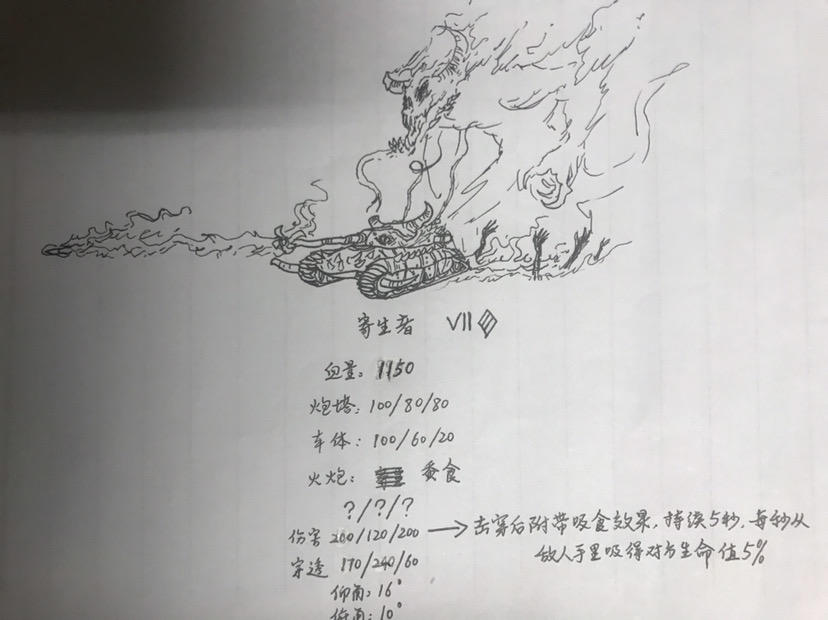 寄生者 VII
血量：1150
炮塔：100/80/80
车体：100/60/20
火炮： 蚕食
?/?/?
伤害 200/120/200 → 击穿后附带吸食效果，持续5秒，每秒从
敌人手里吸得对方生命值5%
穿透 170/240/60
仰角：16°
俯角：10°